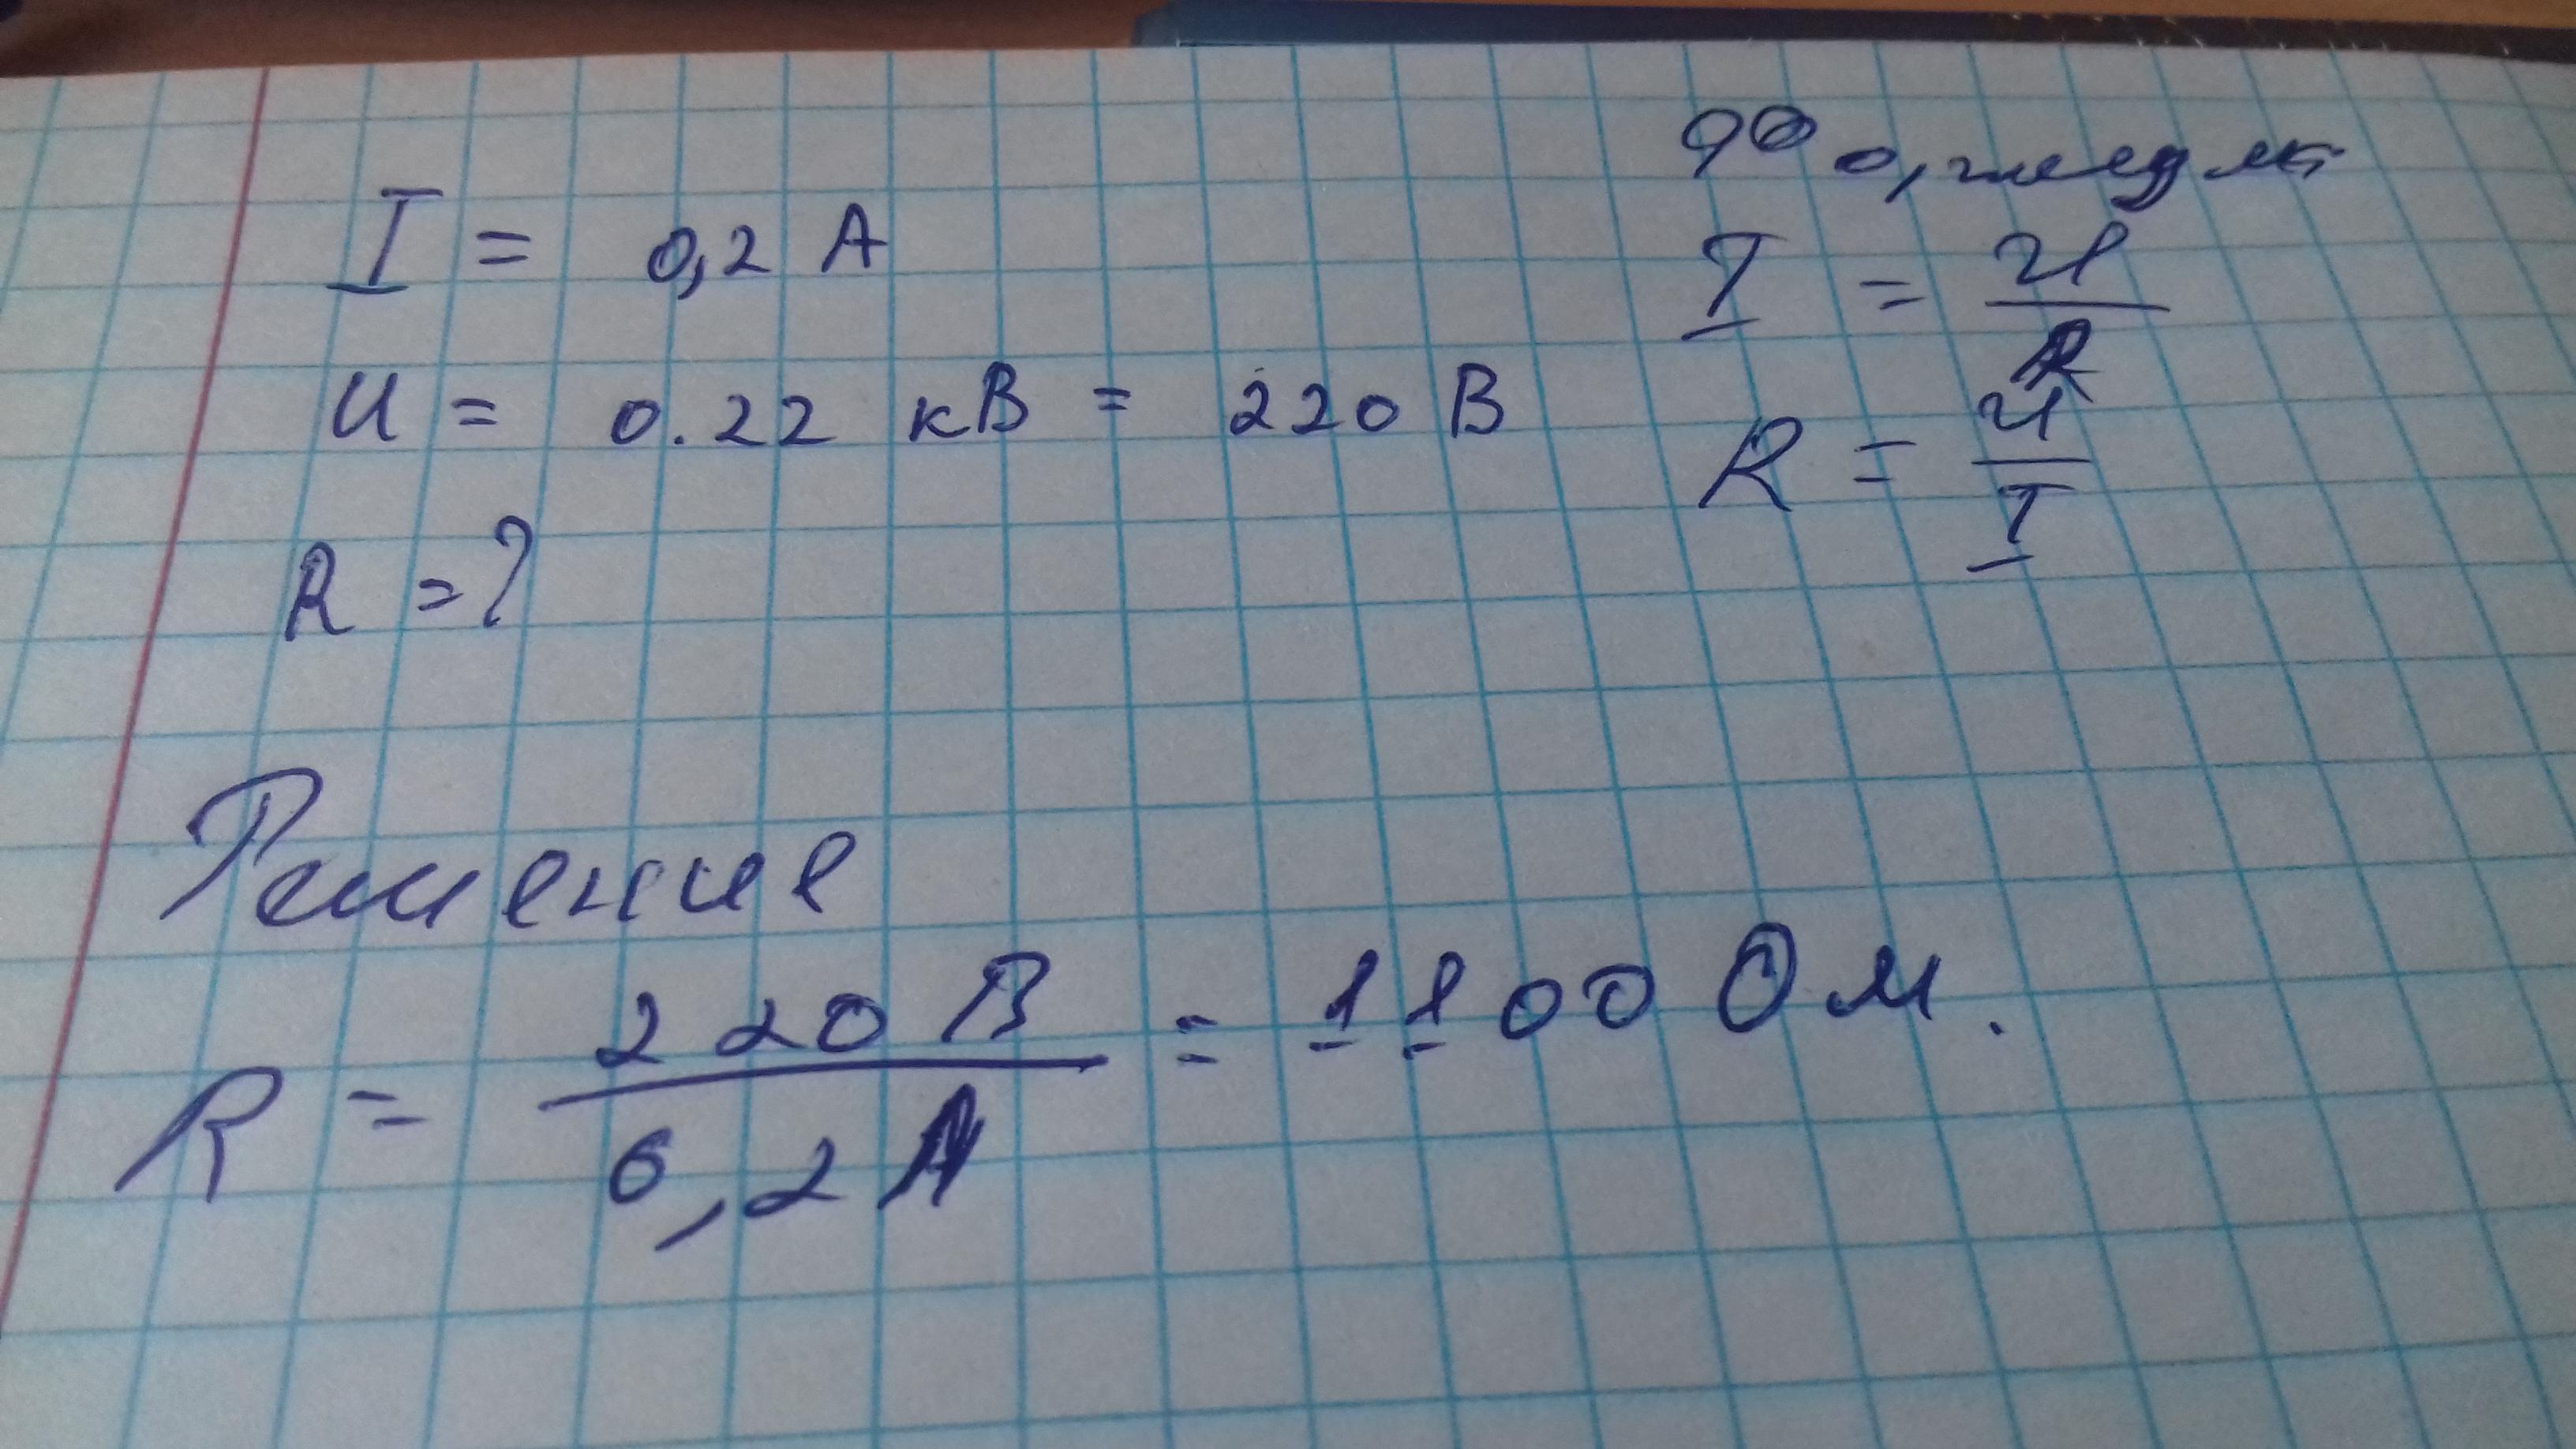 I = 0,2 A
U = 0.22 кВ = 220 В
R = ?
I = U / R
R = U / I
Решение
R = 220 В / 0,2 A = 1100 Ом.